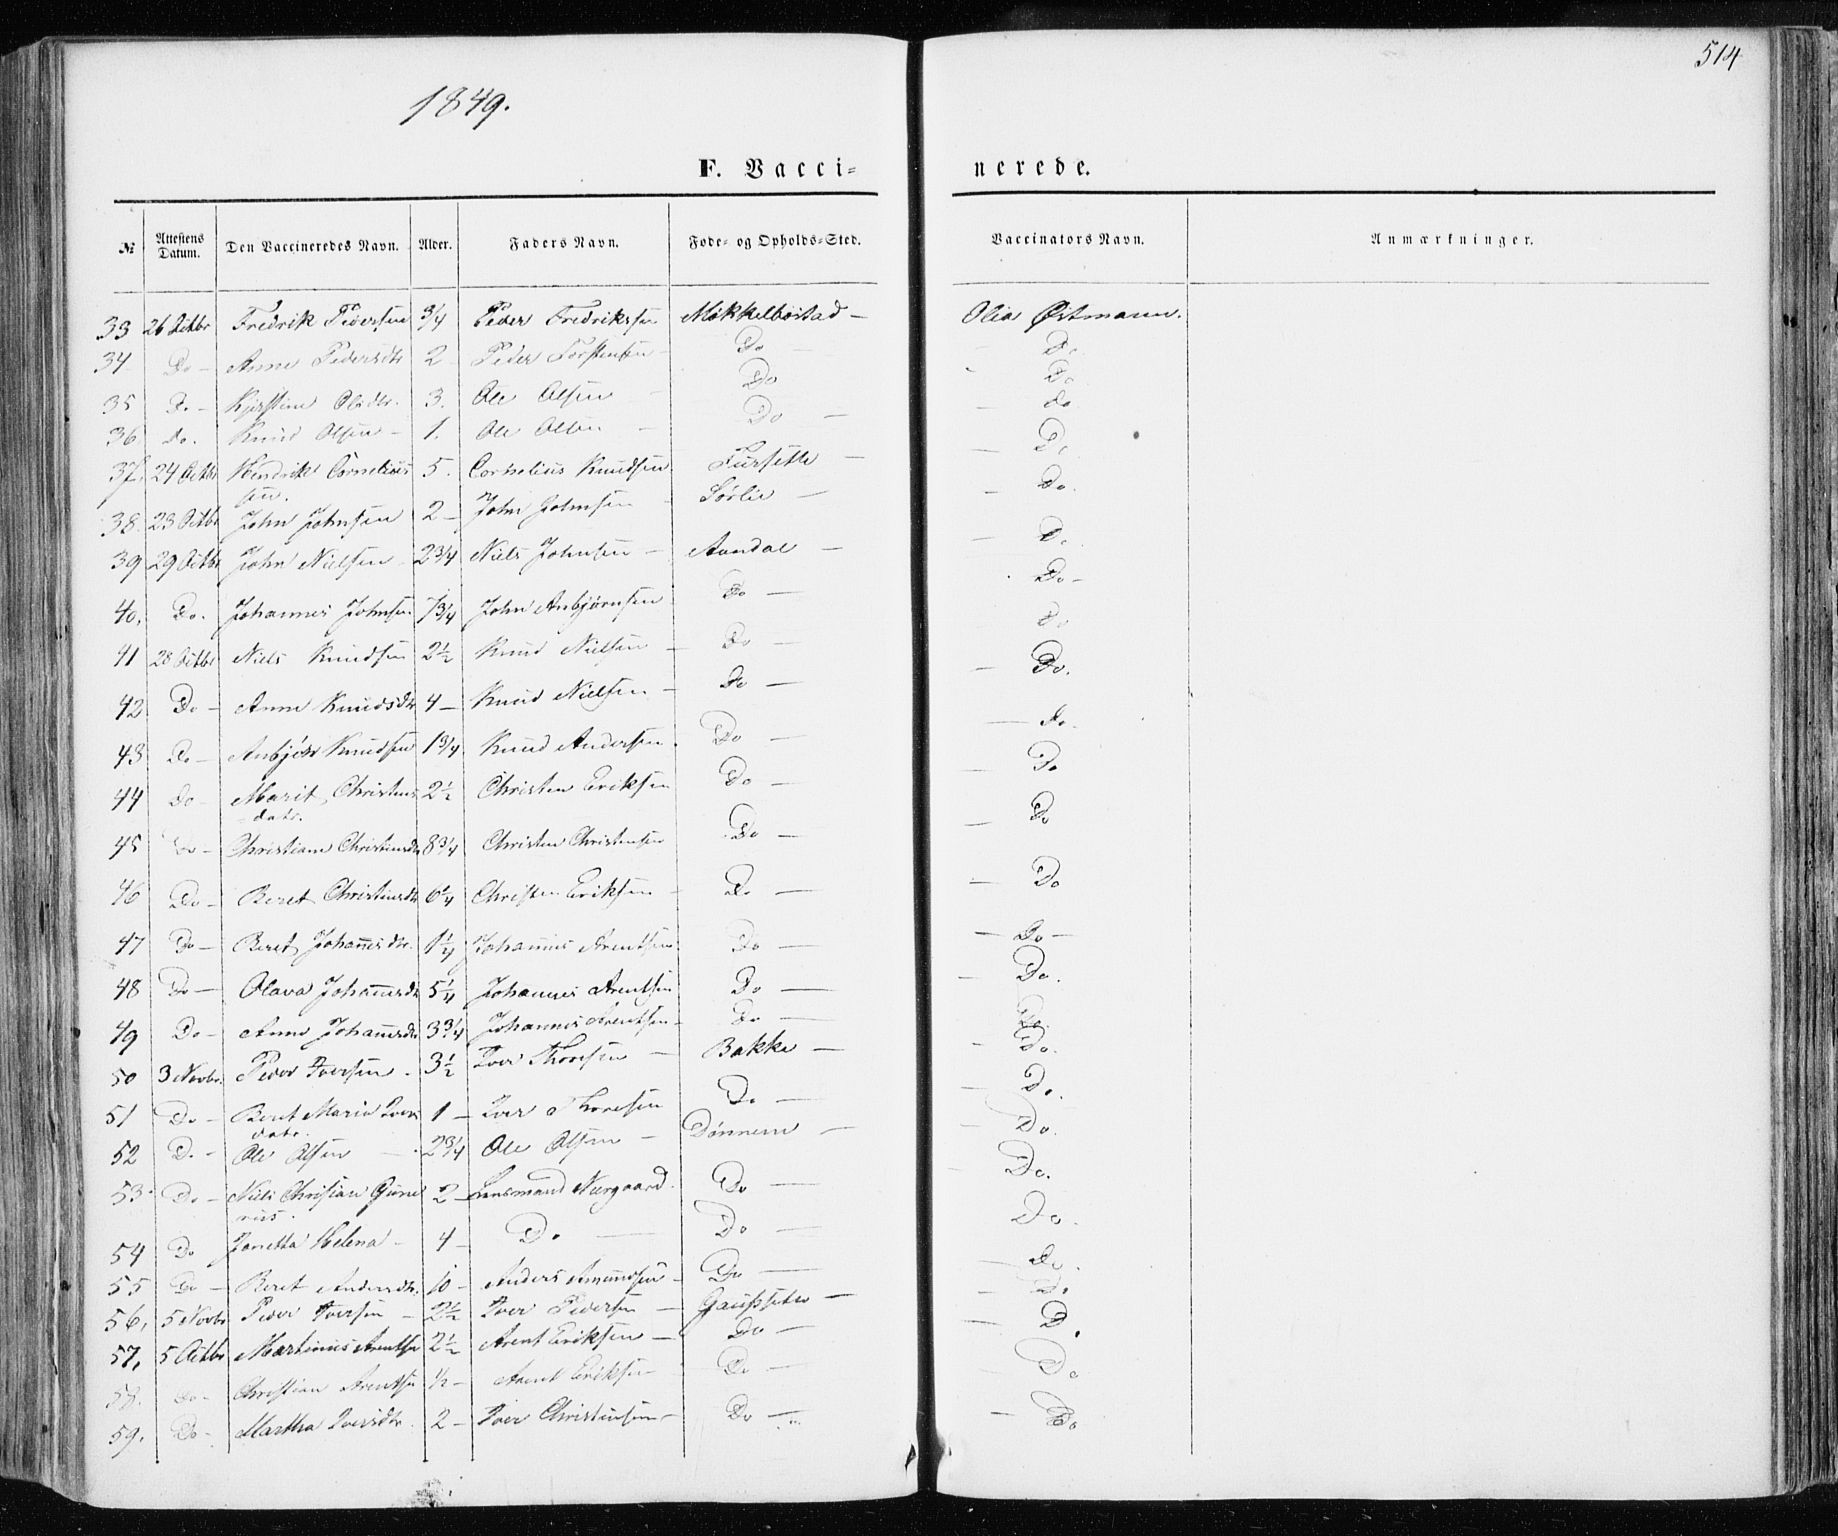 514
1849.
F. Vacci= nerede.
№ Attestens Datum. Den Vaccineredes Navn. Alder. Faders Navn. Føde- og Opholds-Sted. Vaccinators Navn. Anmærkninger.
33 26 Octbr Fredrik Pedersen 3/4 Peder Fredriksen Mokkelbostad — Olia Østmann.
34 Do — Anne Pedersdtr 2 — Peder Torstensen — Do — Do
35 Do — Kjerstine Olsdtr. 3. Ole Olsen — Do — Do
36 Do. Knud Olsen — 1. Ole Olsen — Do — do
37. 24 Octbr Hendrik Cornelius 5. Cornelius Knudsen Fursette — Do
sen.
38. 23 Octbr John Johnsen 2 — John Johnsen — Sørlie — Do.
39 29 Octbr John Nielsen 2 3/4 Niels Johnsen — Aandal — Do
40. Do. Johannes Johnsen 7 3/4 John Anbjørnsen Do — Do —
41 28 Octbr Niels Knudsen 2 1/2 Knud Nielsen — Do — Do
42 Do — Anne Knudsdtr 4 — Knud Nielsen — Do — Do.
43 Do — Anbjør Knudsen 1 3/4 Knud Andersen. Do — do.
44 do — Marit Christens 2 1/2 Christen Eriksen Do — Do
datr.
45 Do — Christiane Christensdtr 8 3/4 Christen Christensen Do — Do
46 Do — Beret Christensdtr 6 1/4 Christen Eriksen — Do — Do
47 Do — Beret Johannesdtr. 1 1/4 Johannes Arentsen Do — Do —
48 Do — Olava Johannesdtr 5 1/4 Johannes Arentsen Do — Do.
49 Do — Anne Johannesdtr 3 3/4 Johannes Arentsen — Do — Do.
50 3 Novbr. Peder Iversen. 3 1/2 Iver Thoresen — Bakke — Do.
51 Do — Beret Maria Ivers 1 — Iver Thoresen Do — Do.
datr.
52 D. — Ole Olsen — 2 3/4 Ole Olsen — Dønnem — Do.
53. Do — Niels Christian Gune 2 — Lensmand Neergaard Do — Do.
rius.
54 Do Janetta Helena — 4 — Do — Do — Do.
55 Do — Beret Andersdtr. 10 — Anders Amundsen — Do — Do.
56, 5 Novbr Peder Iversen — 2 1/2 Iver Pedersen — Gaussetee — Do
57, 5 Octbr Martinus Arentsen 2 1/2 Arent Eriksen — Do — D.
58. Do — Christian Arentsen 1/2 — Arent Eriksen — Do — Do
59. Do — Martha Iversdtr. 2 — Iver Christensen — Do — Do